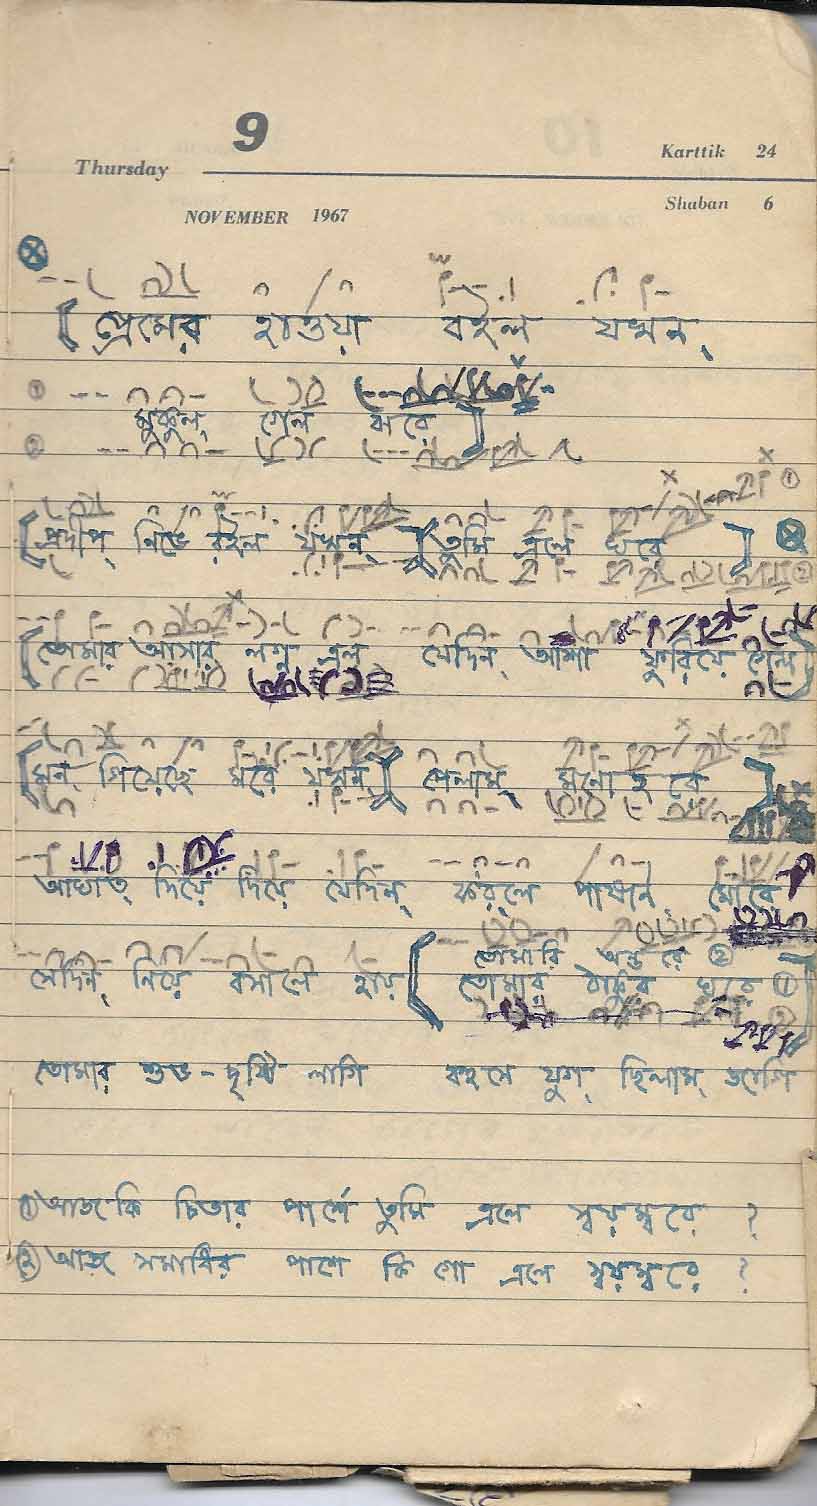 9
Thursday
Karttik 24
NOVEMBER 1967
Shaban 6
[ প্রেমের হাওয়া বইল যখন্
① মুকুল্ গেল ঝরে ]
②
[ প্রদীপ্ নিভে রইল যখন্ ] [ তুমি এলে ঘরে ] ①
②
[ তোমার আসার লগ্ন এল যেদিন্ আশা ফুরিয়ে গেল ]
[ মন্ গিয়েছে মরে যখন্ ] [ পেলাম্ মনোহরে ]
আঘাত্ দিয়ে দিয়ে যেদিন্ করলে পাষান মোরে
[ তোমারি অন্তরে ②
সেদিন্ নিয়ে বসালে হায় তোমার ঠাকুর ঘরে ① ]
তোমার শুভ-দৃষ্টি লাগি বহুসে যুগ্ ছিলাম্ জাগি
① আজ কি চিতার পার্শে তুমি এলে স্বয়ম্বরে ?
② আজ্ সমাধির পাশে কি গো এলে স্বয়ম্বরে ?